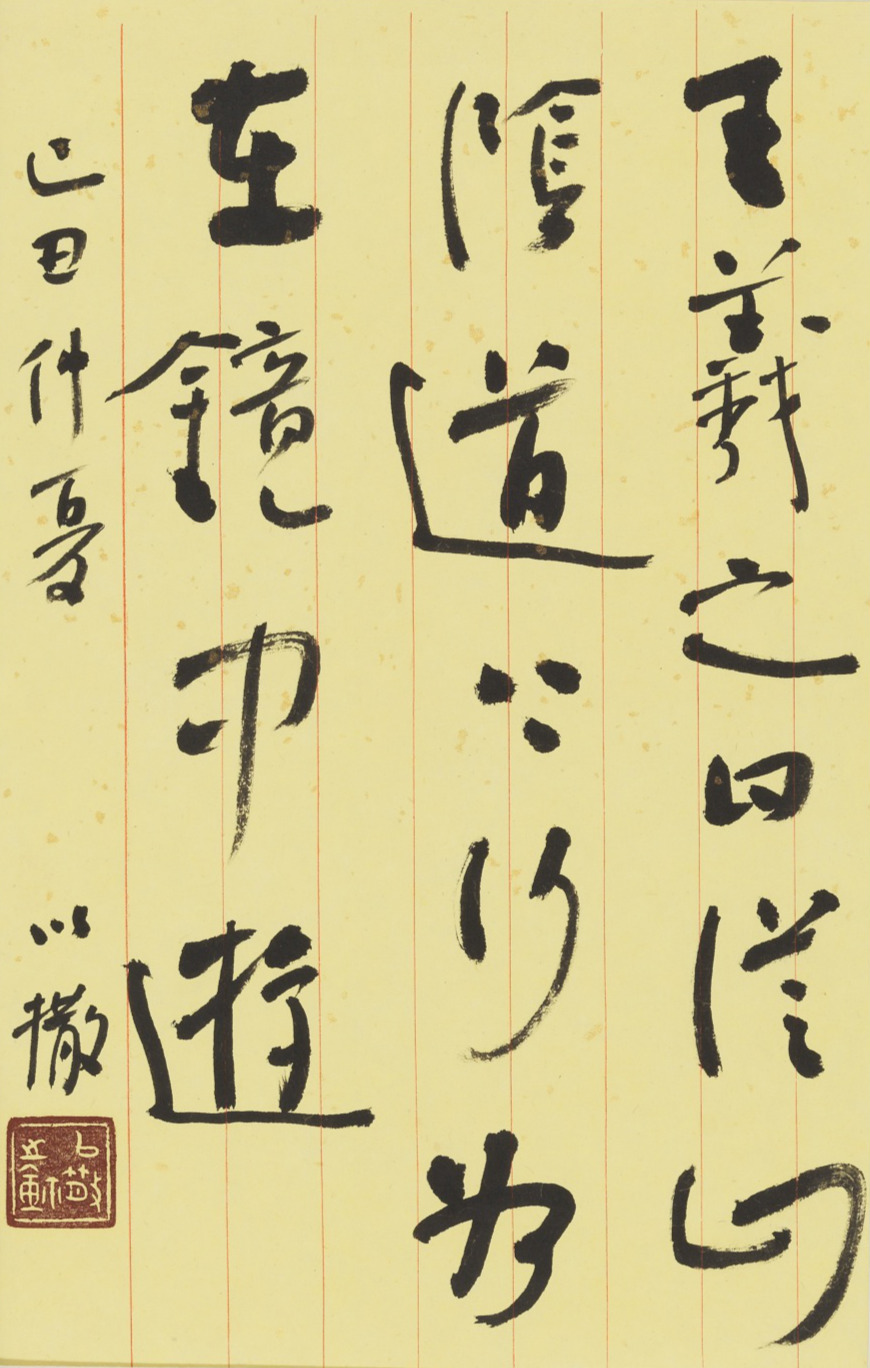 王羲之曰從山
陰道上行如
在鏡中遊
己丑仲夏 以撒